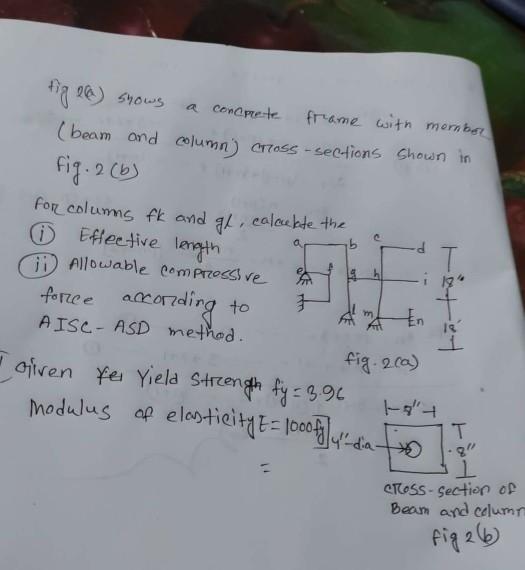 fig 2(a) shows a concrete frame with member
(beam and column) cross-sections shown in
fig. 2(b)
For columns fk and gl, calculate the
(i) Effective length
(ii) Allowable compressive
force according to
AISC-ASD method.
a b c d
e f g h i 18"
l m n 18'
fig. 2(a)
Given Yield Strength fy = 3.96
Modulus of elasticity E = 1000fy]
=
8"
4"-dia 8"
cross-section of
Beam and column
fig 2(b)